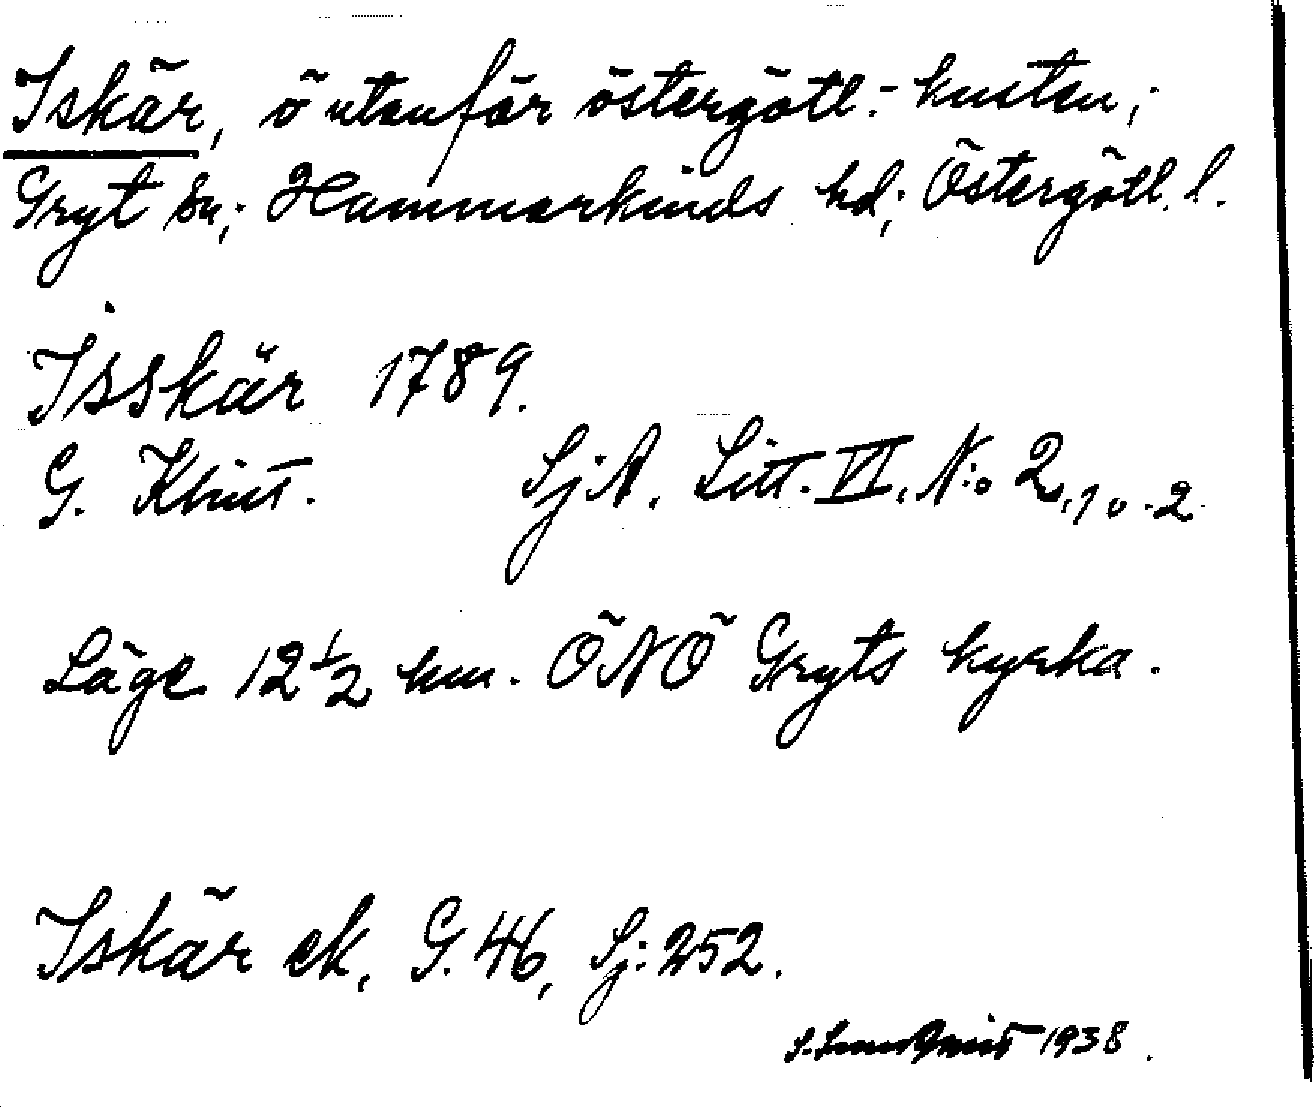 Iskär, ö utanför östergötl.-kusten;
Gryt sn; Hammarkinds hd; Östergötl. l.
Isskär 1789.
G. Klint. SjA. Litt. VI. N:o 2,10.2.
Läge 12 1/2 km. ÖNÖ Gryts kyrka.
Iskär ek, G. 46, Sj: 252.
S. Lundqvist 1938.